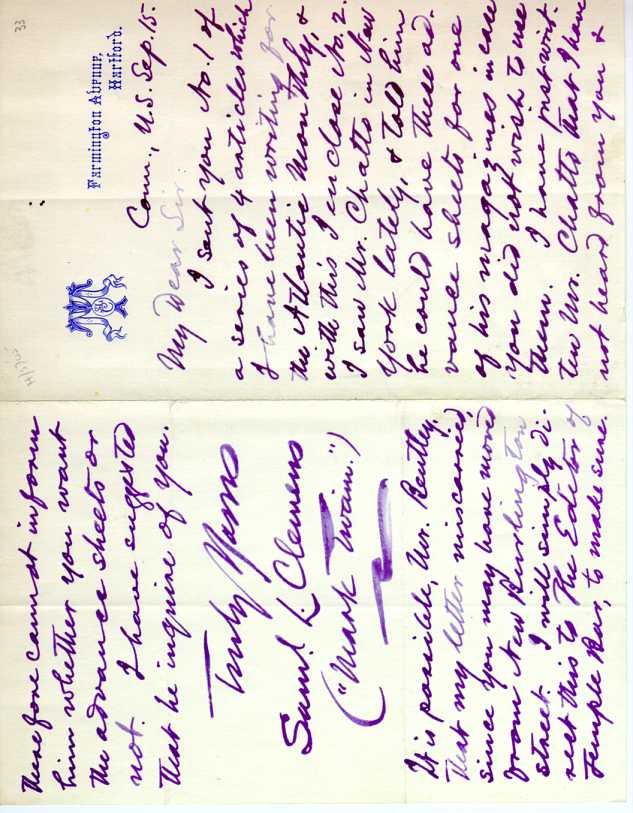 33
Farmington Avenue,
Hartford.
SLC
Conn., U.S. Sep. 15.
My Dear Sir:
I sent you No. 1 of
a series of 4 articles which
I have been writing for
the Atlantic Monthly, &
with this I enclose No. 2.
I saw Mr. Chatto in New
York lately, & told him
he could have these ad-
vance sheets for one
of his magazines in case
you did not wish to use
them. I have just writ-
ten Mr. Chatto that I have
not heard from you &
therefore cannot inform
him whether you want
the advance sheets or
not. I have suggested
that he inquire of you.
Truly Yours
Saml. L. Clemens
("Mark Twain.")
It is possible, Mr. Bentley,
that my letter miscarried,
since you may have moved
from New Burlington
street. I will simply di-
rect this to The Editor of
Temple Bar, to make sure.